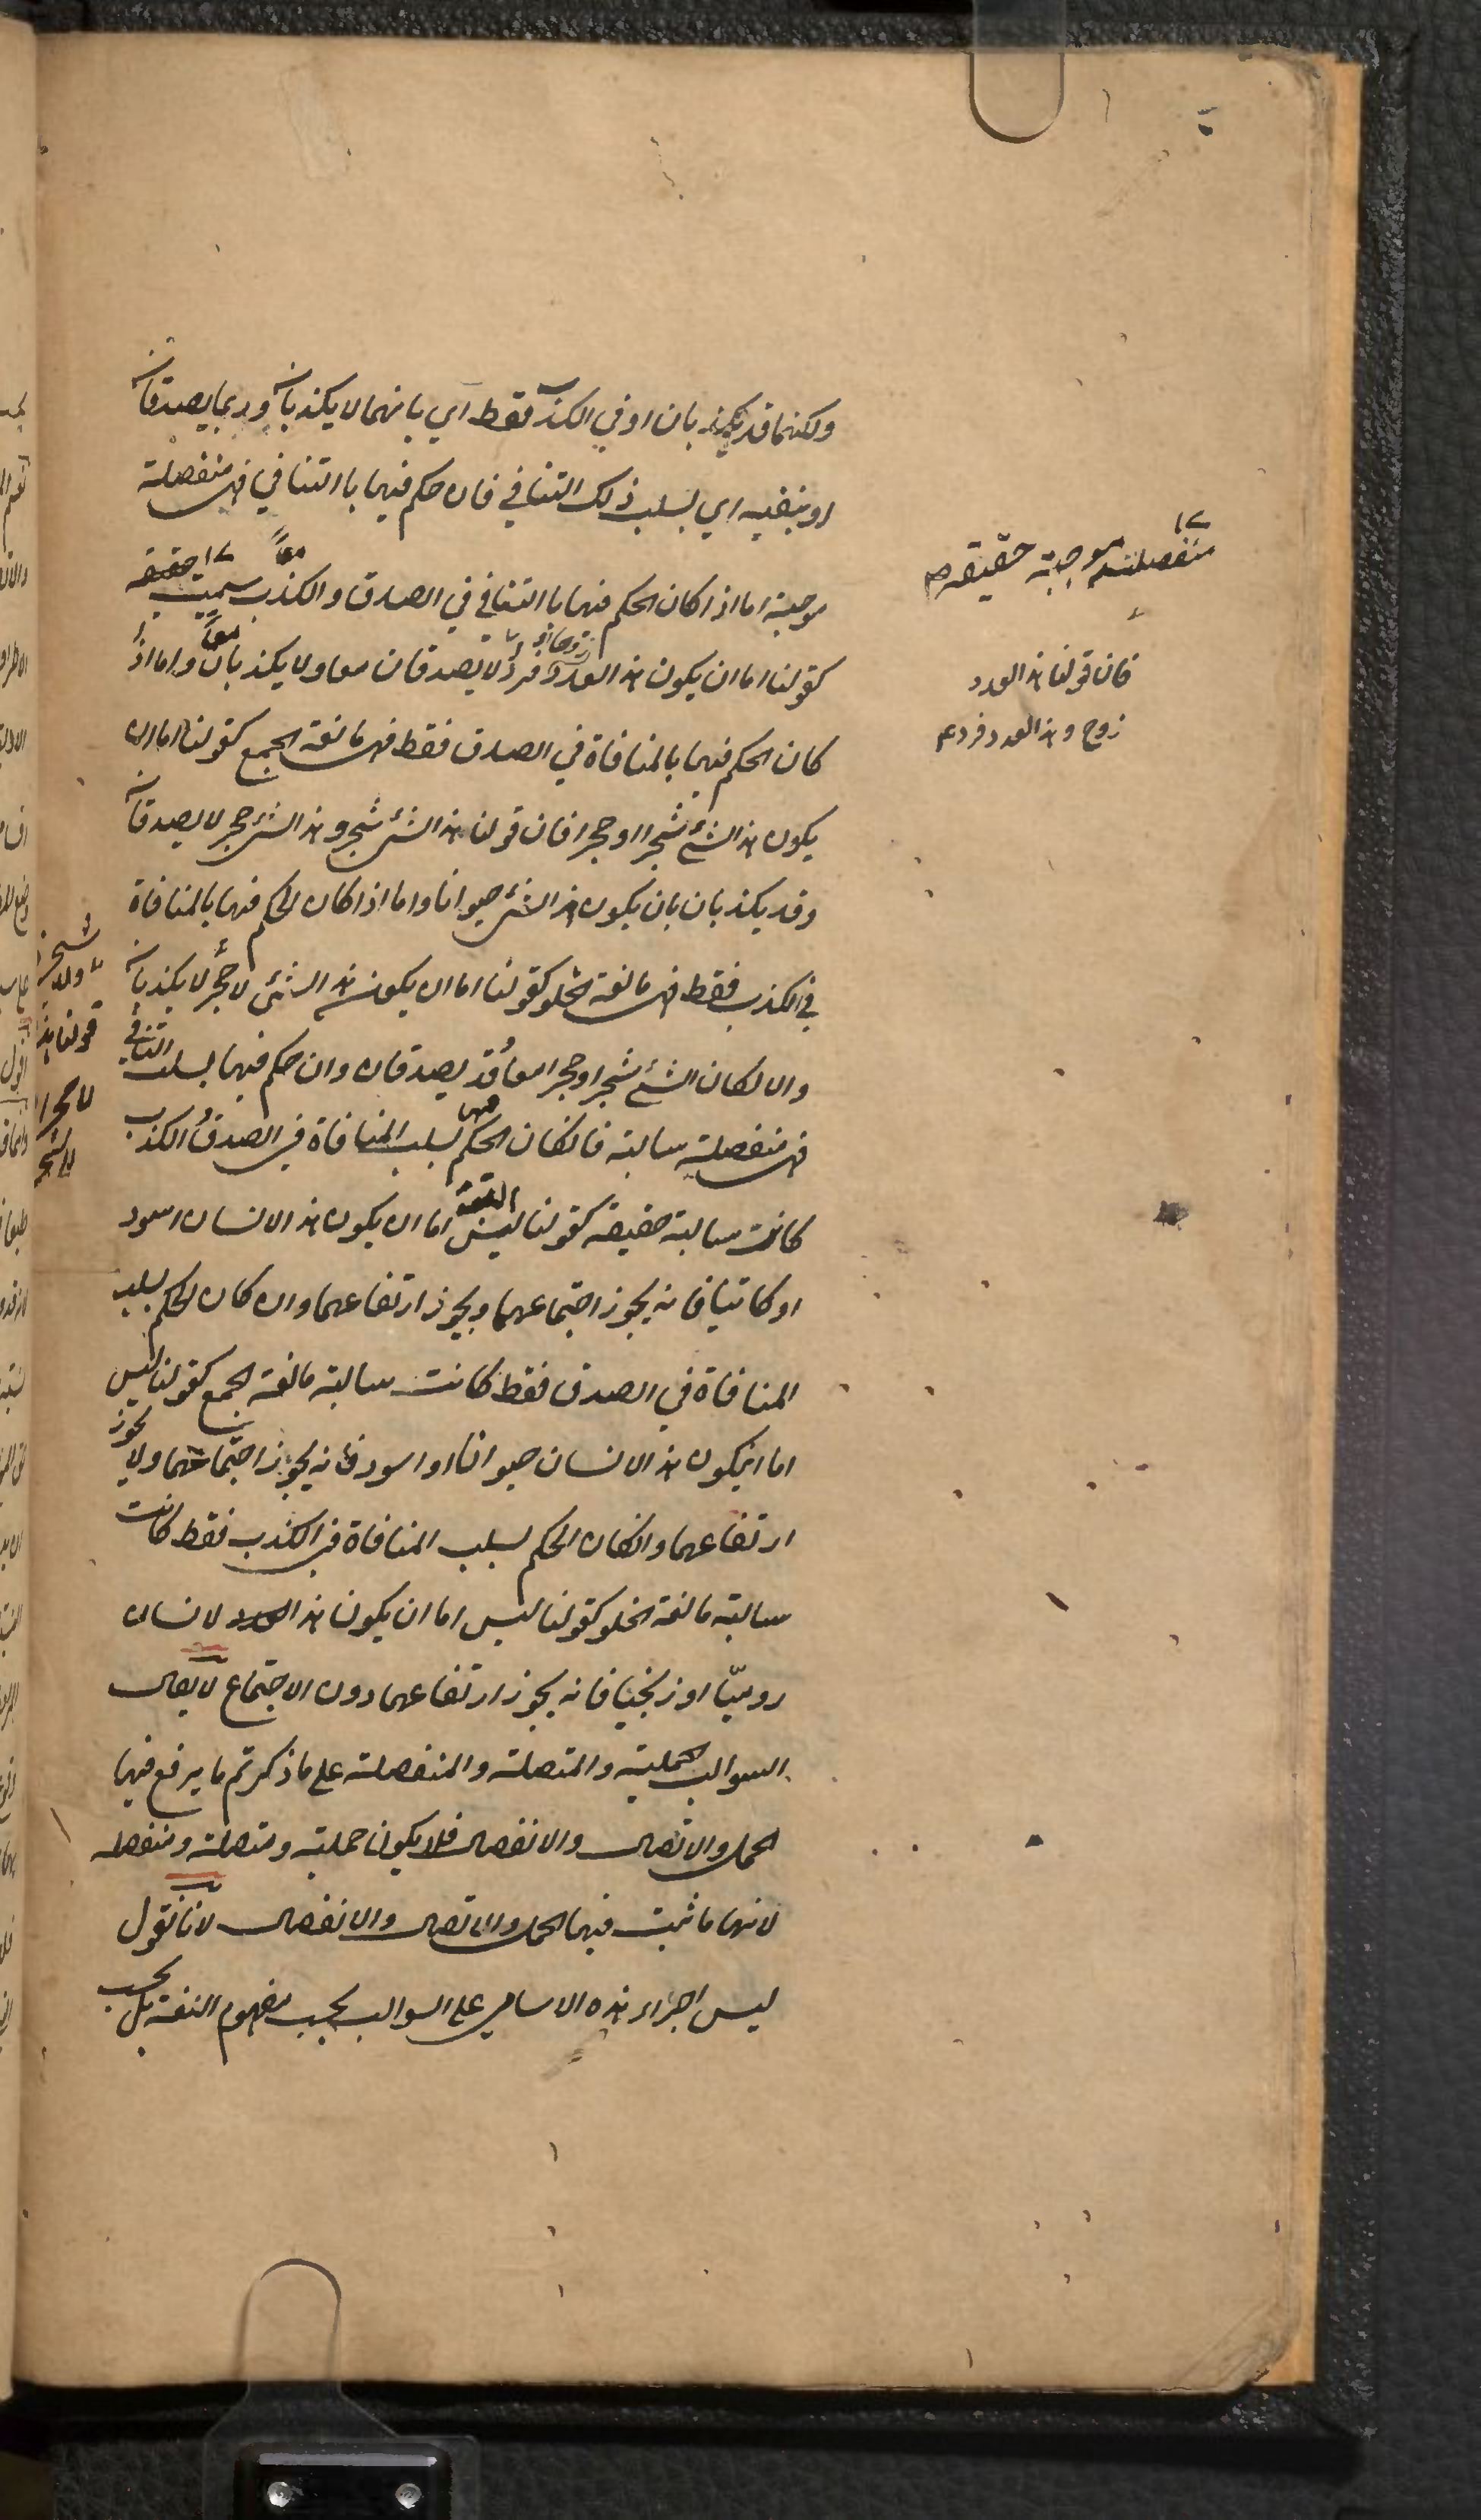 ولكنهما قد يكذبان او في الكذب فقط اي بانهما لا يكذبان وربما يصدقان
او بنفيه اي بسلب ذلك التنافي فان حكم فيها باالتنافي فهي منفصلة
موجبة اما اذا كان الحكم فيها باالتنافي في الصدق والكذب معاً سميت حقيقة
كقولنا اما ان يكون هذا العدد زوجا او فردا لا يصدقان معا ولا يكذبان معاً واما اذا
كان الحكم فيها بالمنافاة في الصدق فقط فهي مانعة الجمع كقولنا اما ان
يكون هذا الشئ شجرا او حجرا فان قولنا هذا الشئ شجر وهذا الشئ حجر لا يصدقان
وقد يكذبان بان يكون هذا الشئ حيوانا واما اذا كان الحكم فيها بالمنافاة
في الكذب فقط فهي مانعة الخلو كقولنا اما ان يكون هذا الشئ لا حجر لا يكذبان
والا لكان الشئ شجرا وحجرا معا وقد يصدقان وان حكم فيها بسلب التنافي
فهي منفصلة سالبة فانكان الحكم فيها بسلب المنافاة في الصدق والكذب
كانت سالبة حقيقة كقولنا ليس البتة اما ان يكون هذا الانسان اسود
او كاتبا فانه يجوز اجتماعهما ويجوز ارتفاعهما وان كان الحكم بسلب
المنافاة في الصدق فقط كانت سالبة مانعة الجمع كقولنا ليس
اما انيكون هذا الانسان حيوانا او اسود فانه يجوز اجتماعهما ولا يجوز
ارتفاعهما وانكان الحكم بسلب المنافاة في الكذب فقط كانت
سالبة مانعة الخلو كقولنا ليس اما ان يكون هذا الانسان
روميّا او زنجيا فانه يجوز ارتفاعهما دون الاجتماع لا يقال
السوالب الحملية والمتصلة والمنفصلة على ما ذكرتم ما يرفع فيها
الحمل والاتصال والانفصال فلا يكون حملية ومتصلة ومنفصلة
لانها ما ثبت فيها الحمل والاتصال والانفصال لانا نقول
ليس اجراء هذه الاسامي على السوالب بحسب مفهوم اللغة بل بحسب
منفصلة موجبة حقيقة
فان قولنا هذا العدد
زوج وهذا العدد فرد